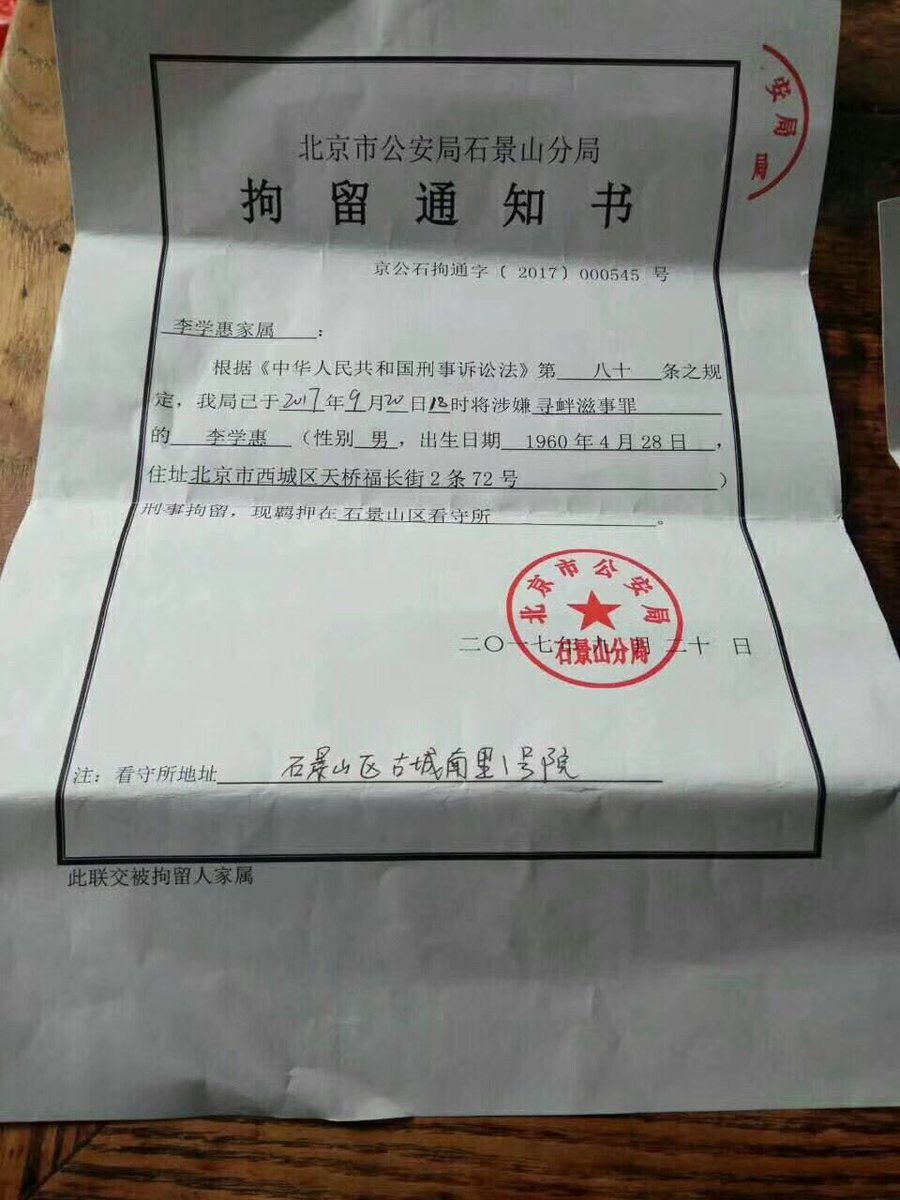 北京市公安局石景山分局
拘留通知书
京公石拘通字〔2017〕000545 号
李学惠家属：
根据《中华人民共和国刑事诉讼法》第 八十 条之规
定，我局已于2017年9月20日18时将涉嫌寻衅滋事罪
的 李学惠 （性别 男，出生日期 1960年4月28日，
住址北京市西城区天桥福长街2条72号）
刑事拘留，现羁押在石景山区看守所。
北京市公安局
石景山分局
二〇一七年九月二十日
注：看守所地址 石景山区古城南里1号院
此联交被拘留人家属
安局
局